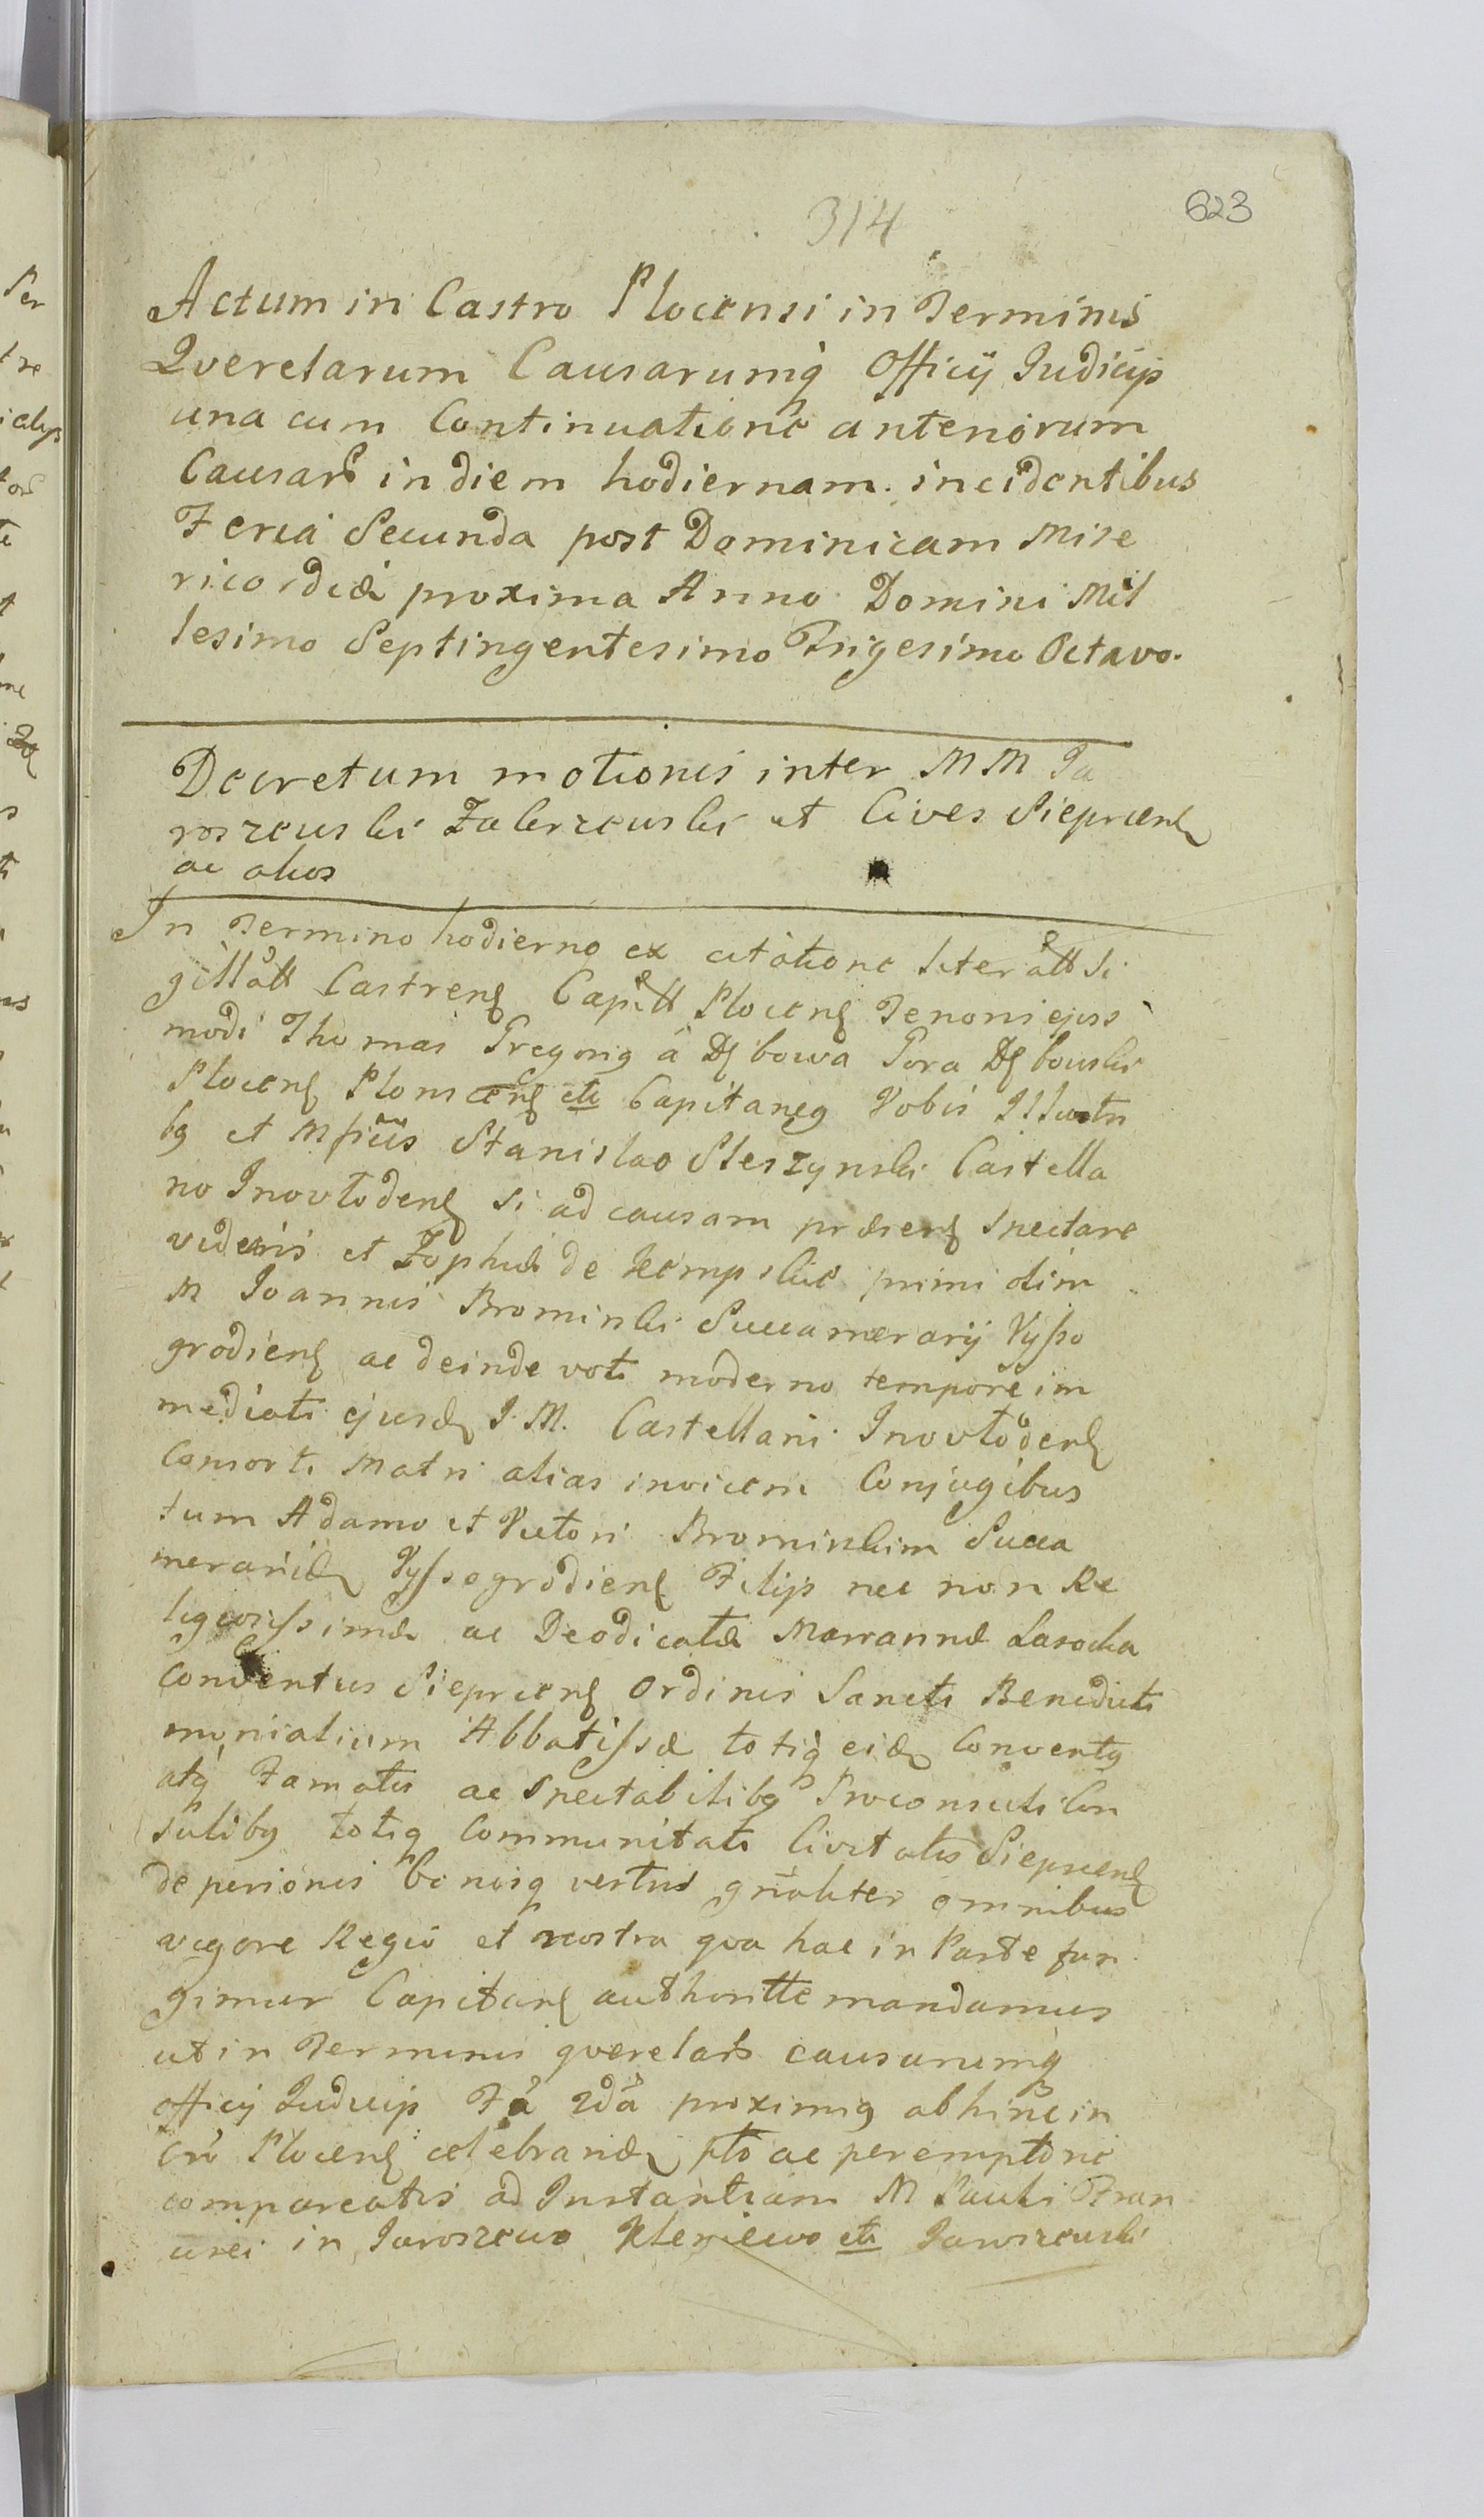 314
623
Actum in Castro Plocensi in Terminis
Querelarum Causarumq Officij Judicijs
una cum Continuatione anteriorum
Causarũ in diem hodiernam incidentibus
Feria Secunda post Dominicam Mise
ricordiæ proxima Anno Domini Mil
lesimo Septingentesimo Trigesimo Octavo.
Decretum motionis inter MM Ja
roszewski Zaborzewski et Cives Sieprcen
ac alios
In Termino hodierno ex citatione literatt Si
gillatt Castren Capitt Plocen Tenoris ejus
modi Thomas Gregorig à Dębowa Gora Dębowski
Plocen Plonscen etc Capitaneg Vobis Illustri
bg et Mficis Stanislao Steszynski Castella
no Inowloden si ad causam præsen spectare
videris et Zophiæ de Kempskie primi olim
M Joannis Brominski Succamerarij Vysso
grodien ac deinde voti moderno tempore im
mediati ejusd J. M. Castellani Inowloden
Consorti Matri alias invicem Conjugibus
tum Adamo et Victori Brominskim Succa
merarid Vyssogrodien Filijs nec non Re
ligiosissimæ ac Deodicatæ Mariannæ Lasocka
Conventus Sieprcen Ordinis Sancti Benedicti
monialium Abbatissæ totiq eid Conventg
atq Famatis ac Spectabilibg Proconsuli Con
sulibg totiq Communitati Civitatis Sieprcen
de personis bonisq vestris gñaliter omnibus
vigore Regio et nostra qva hac in Parte fun
gimur Capitan authoritte mandamus
ut in Terminis querelarũ causarumq
officij Judicijs Fa 2da proximig abhinc in
Cro Plocen celebrand pto ac peremptorie
compareatis ad Instantiam M Pauli Fran
cisci in Jaroszewo Kleniewo etc Jaroszewski